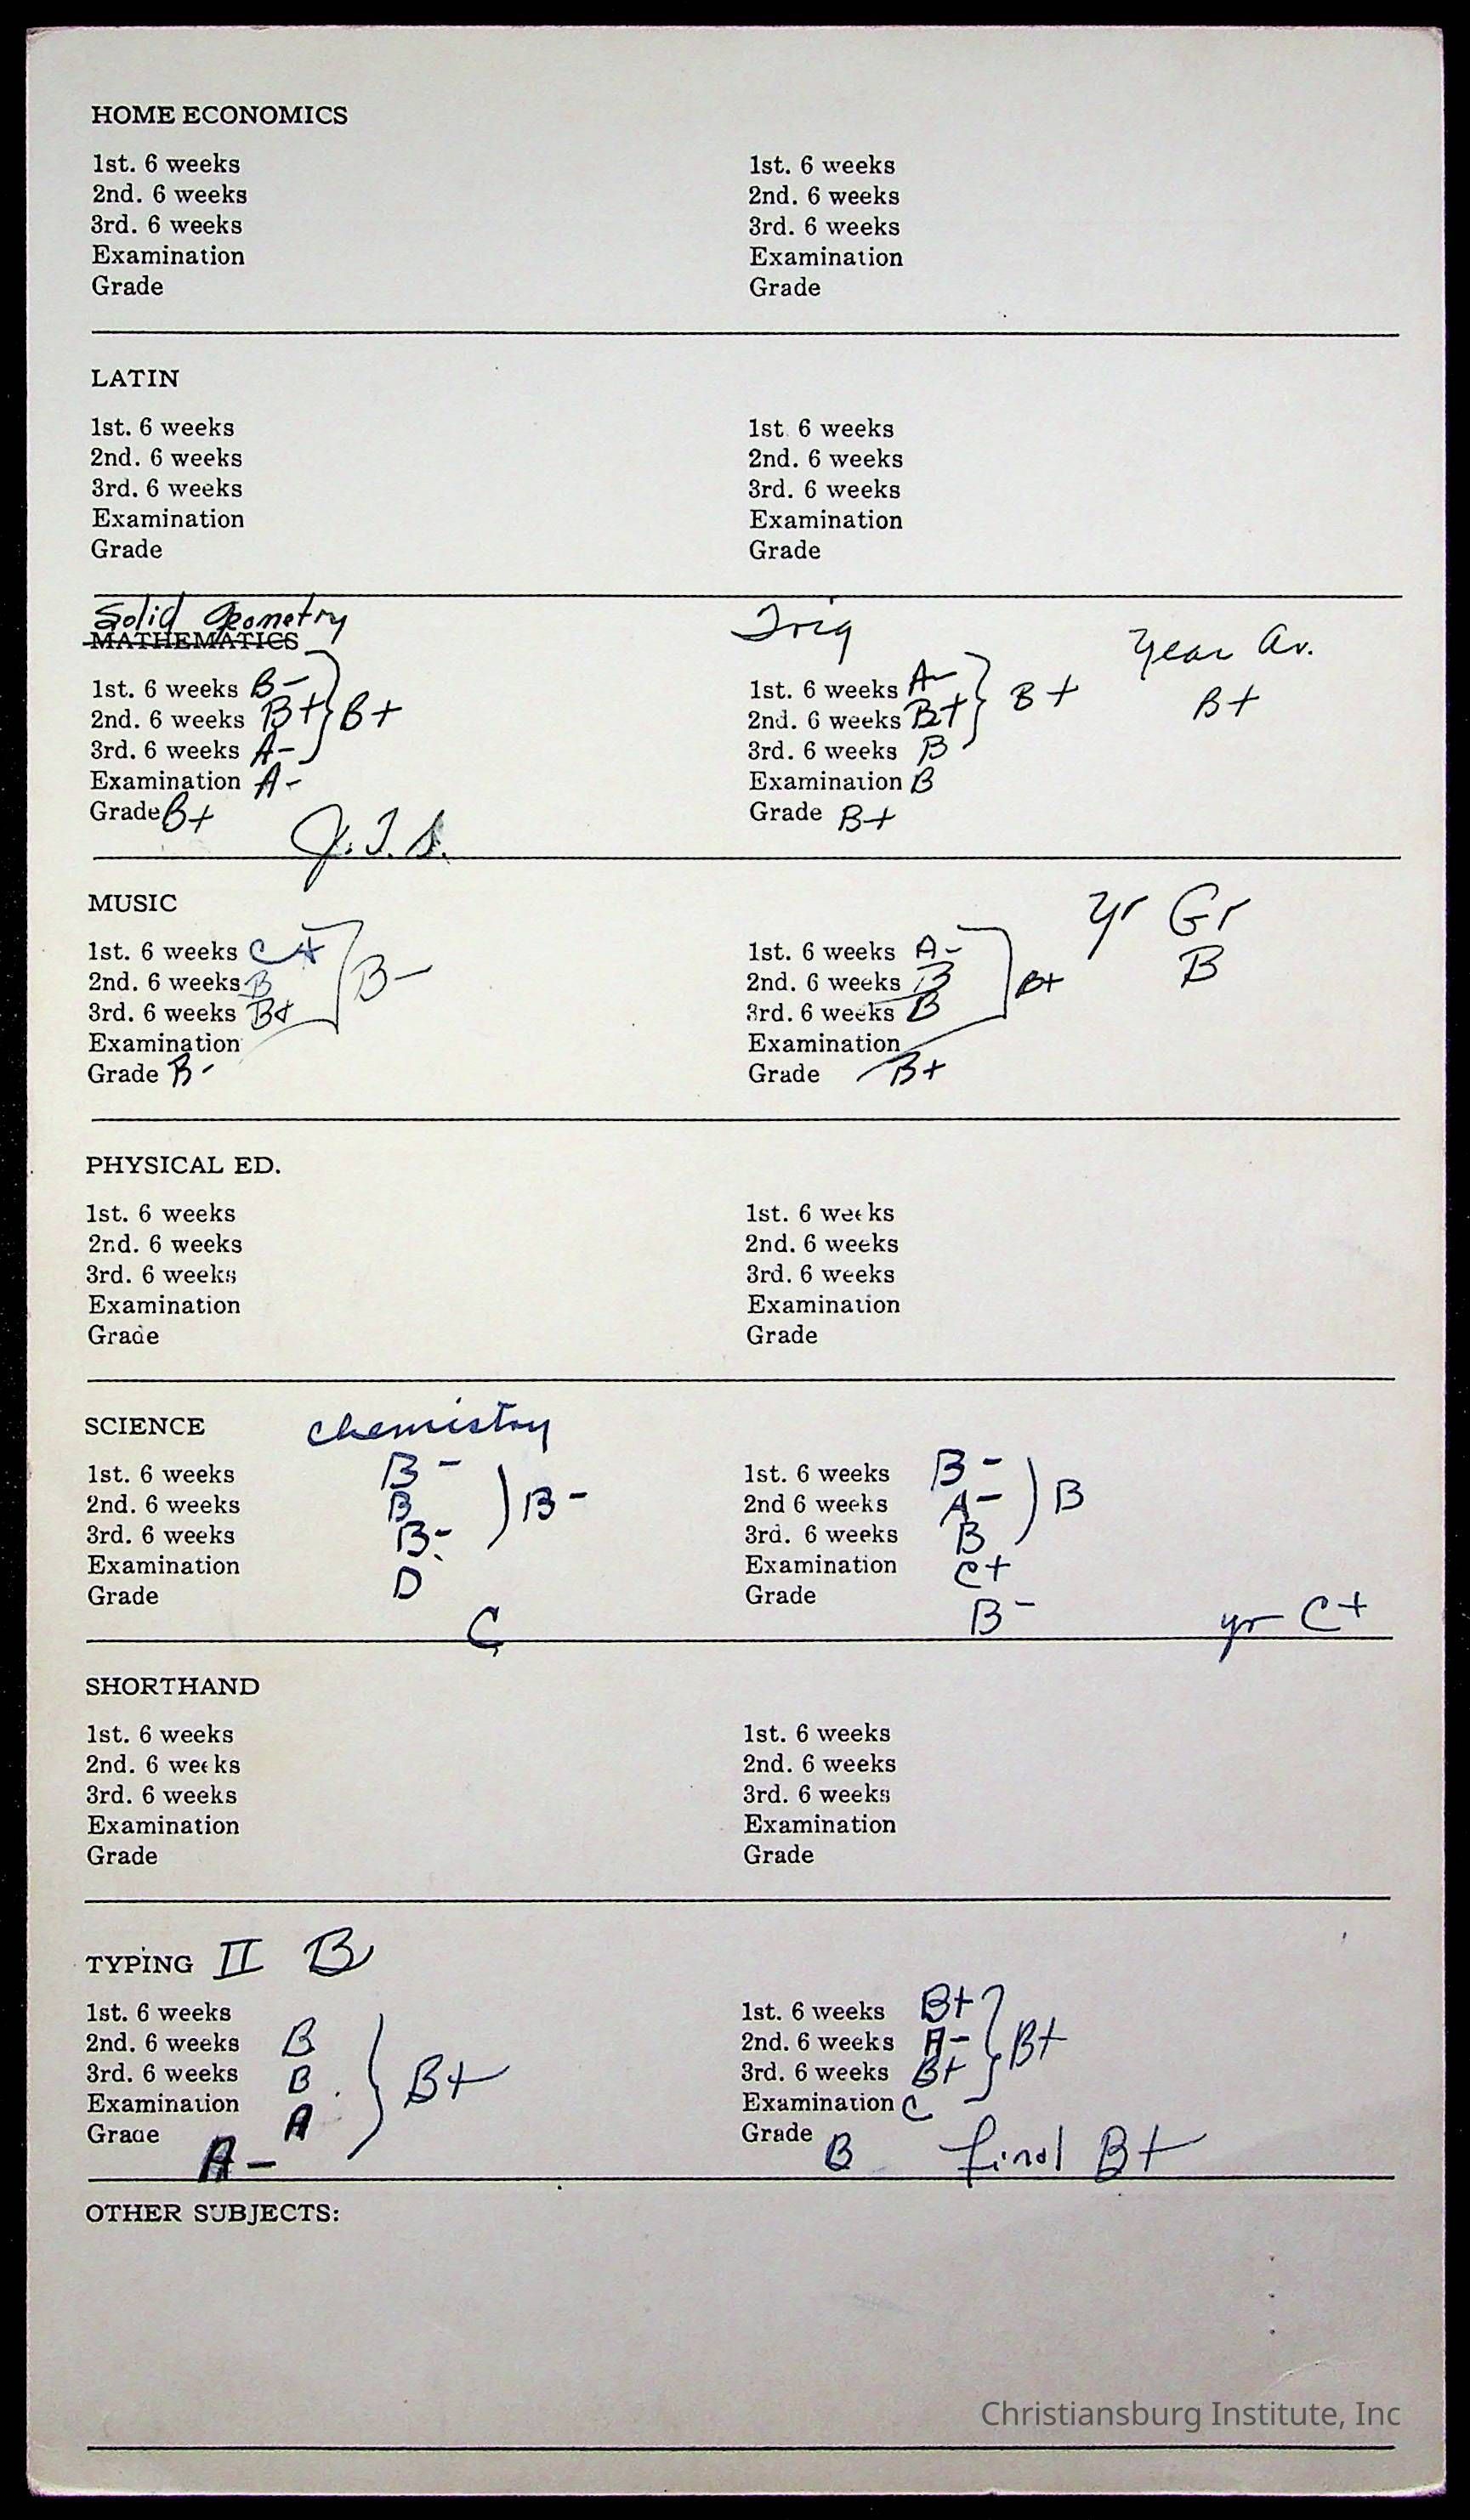 HOME ECONOMICS
1st. 6 weeks 1st. 6 weeks
2nd. 6 weeks 2nd. 6 weeks
3rd. 6 weeks 3rd. 6 weeks
Examination Examination
Grade Grade
LATIN
1st. 6 weeks 1st. 6 weeks
2nd. 6 weeks 2nd. 6 weeks
3rd. 6 weeks 3rd. 6 weeks
Examination Examination
Grade Grade
Solid Geometry Trig Year Av.
MATHEMATICS
1st. 6 weeks B- 1st. 6 weeks A-
2nd. 6 weeks B+ B+ 2nd. 6 weeks B+ B+ B+
3rd. 6 weeks A- 3rd. 6 weeks B
Examination A- Examination B
Grade B+ Grade B+
J.T.S.
MUSIC yr Gr
1st. 6 weeks C+ 1st. 6 weeks A-
2nd. 6 weeks B B- 2nd. 6 weeks B B+ B
3rd. 6 weeks B+ 3rd. 6 weeks B
Examination Examination
Grade B- Grade B+
PHYSICAL ED.
1st. 6 weeks 1st. 6 weeks
2nd. 6 weeks 2nd. 6 weeks
3rd. 6 weeks 3rd. 6 weeks
Examination Examination
Grade Grade
SCIENCE chemistry
1st. 6 weeks B- 1st. 6 weeks B-
2nd. 6 weeks B B- 2nd 6 weeks A- B
3rd. 6 weeks B- 3rd. 6 weeks B
Examination D Examination C+
Grade C Grade B- yr C+
SHORTHAND
1st. 6 weeks 1st. 6 weeks
2nd. 6 weeks 2nd. 6 weeks
3rd. 6 weeks 3rd. 6 weeks
Examination Examination
Grade Grade
TYPING II B
1st. 6 weeks 1st. 6 weeks B+
2nd. 6 weeks B 2nd. 6 weeks A- B+
3rd. 6 weeks B B+ 3rd. 6 weeks B+
Examination A Examination C
Grade A- Grade B final B+
OTHER SUBJECTS:
Christiansburg Institute, Inc